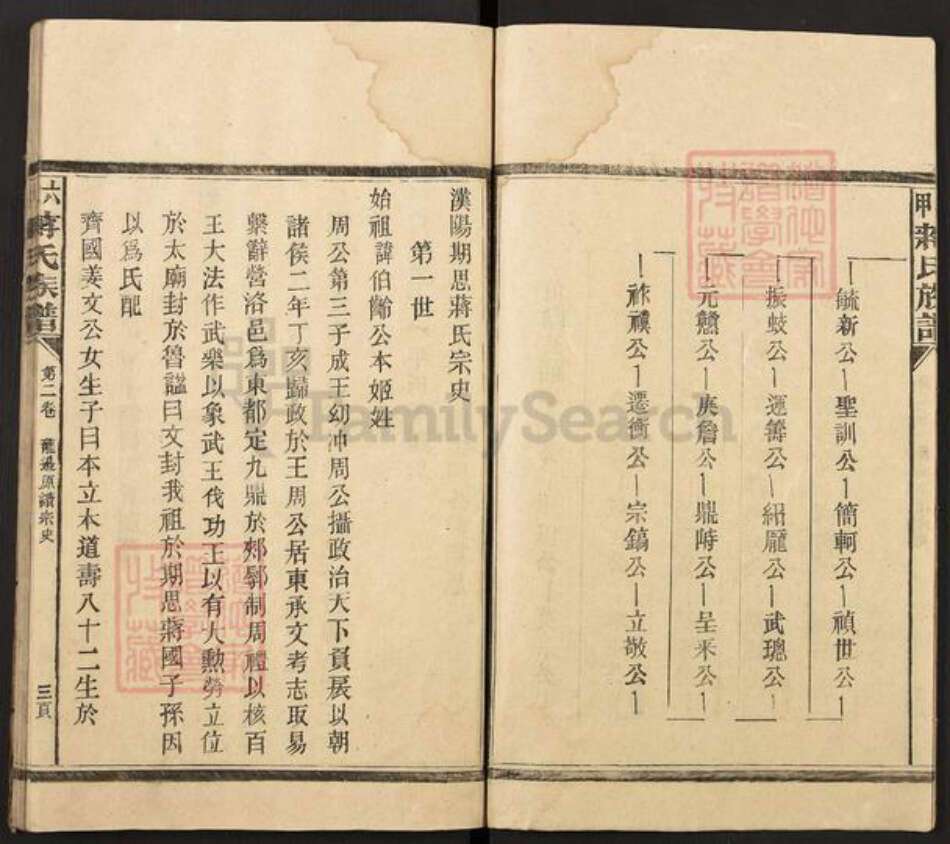 蔣氏族譜
毓新公 聖訓公 簡軻公 禎世公
振蚑公 運籌公 紹龎公 武璁公
元戇公 庚詹公 鼎時公 呈來公
祚襆公 遷衡公 宗鎬公 立敬公
漢陽期思蔣氏宗史
第一世
始祖諱伯齡公本姬姓
周公第三子成王幼冲周公攝政治天下負扆以朝
諸侯二年丁亥歸政於王周公居東承文考志取易
繫辭營洛邑爲東都定九鼎於郟鄏制周禮以核百
王大法作武樂以象武王伐功王以有大勲勞立位
於太廟封於魯諡曰文封我祖於期思蔣國子孫因
以爲氏配
齊國姜文公女生子曰本立本道壽八十二生於
六 蔣氏族譜
第二卷
宗史
三頁
FamilySearch